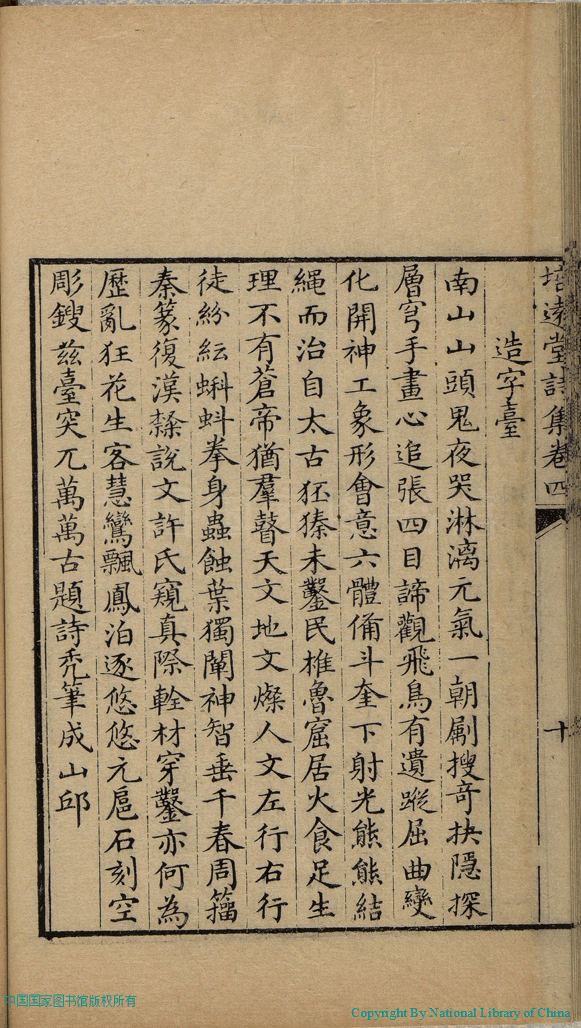 培遠堂詩集卷四
十
造字臺
南山山頭鬼夜哭淋漓元氣一朝劚搜奇抉隱探
層穹手畫心追張四目諦觀飛鳥有遺蹤屈曲變
化開神工象形會意六體備斗奎下射光熊熊結
繩而治自太古狉獉未鑿民椎魯窟居火食足生
理不有蒼帝猶羣瞽天文地文燦人文左行右行
徒紛紜蝌蚪拳身蟲蝕葉獨闡神智垂千春周籀
秦篆復漢隸說文許氏窺真際輇材穿鑿亦何為
歷亂狂花生客慧鸞飄鳳泊逐悠悠元扈石刻空
彫鎪茲臺突兀萬萬古題詩禿筆成山邱
中国国家图书馆版权所有
Copyright By National Library of China